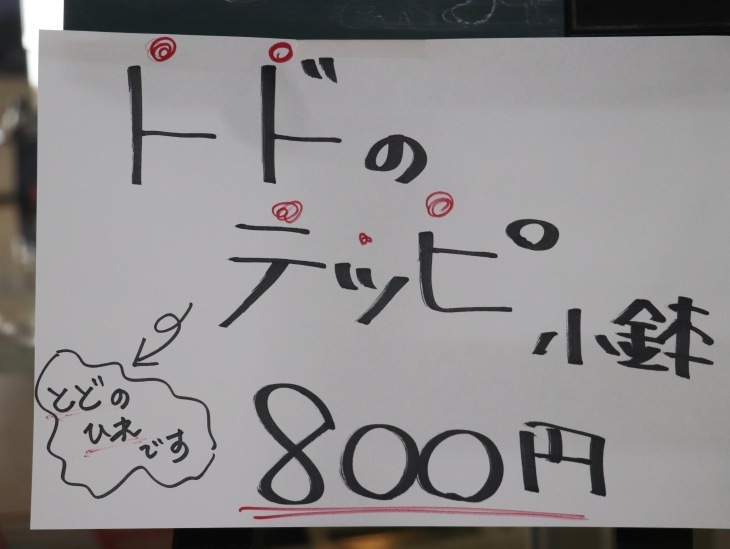 トドの
テッピ
小鉢
800円
とどの
ひれ
です